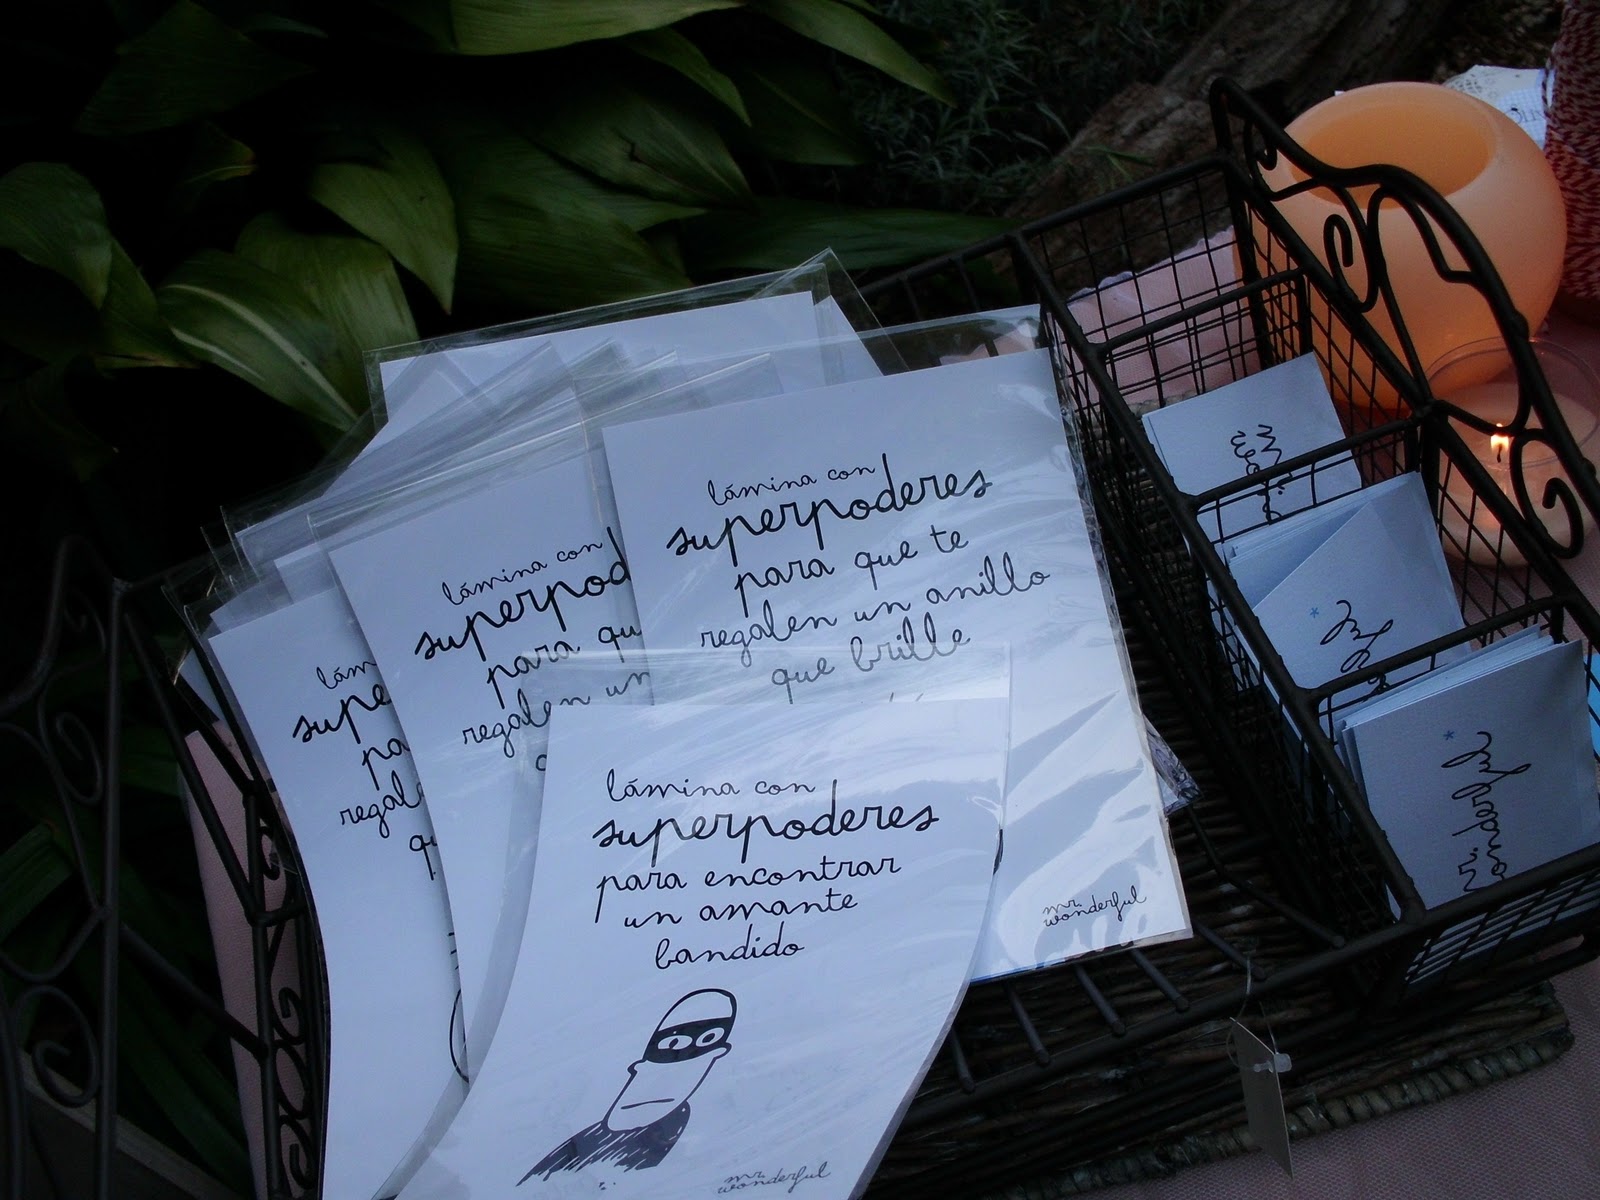 lámina con
superpoderes
para que te
regalen un anillo
que brille
mr.
wonderful
lámina con
superpod
para qu
regalen un
lám
supe
pa
regale
qu
lámina con
superpoderes
para encontrar
un amante
bandido
mr.
wonderful
mr.
wonderful